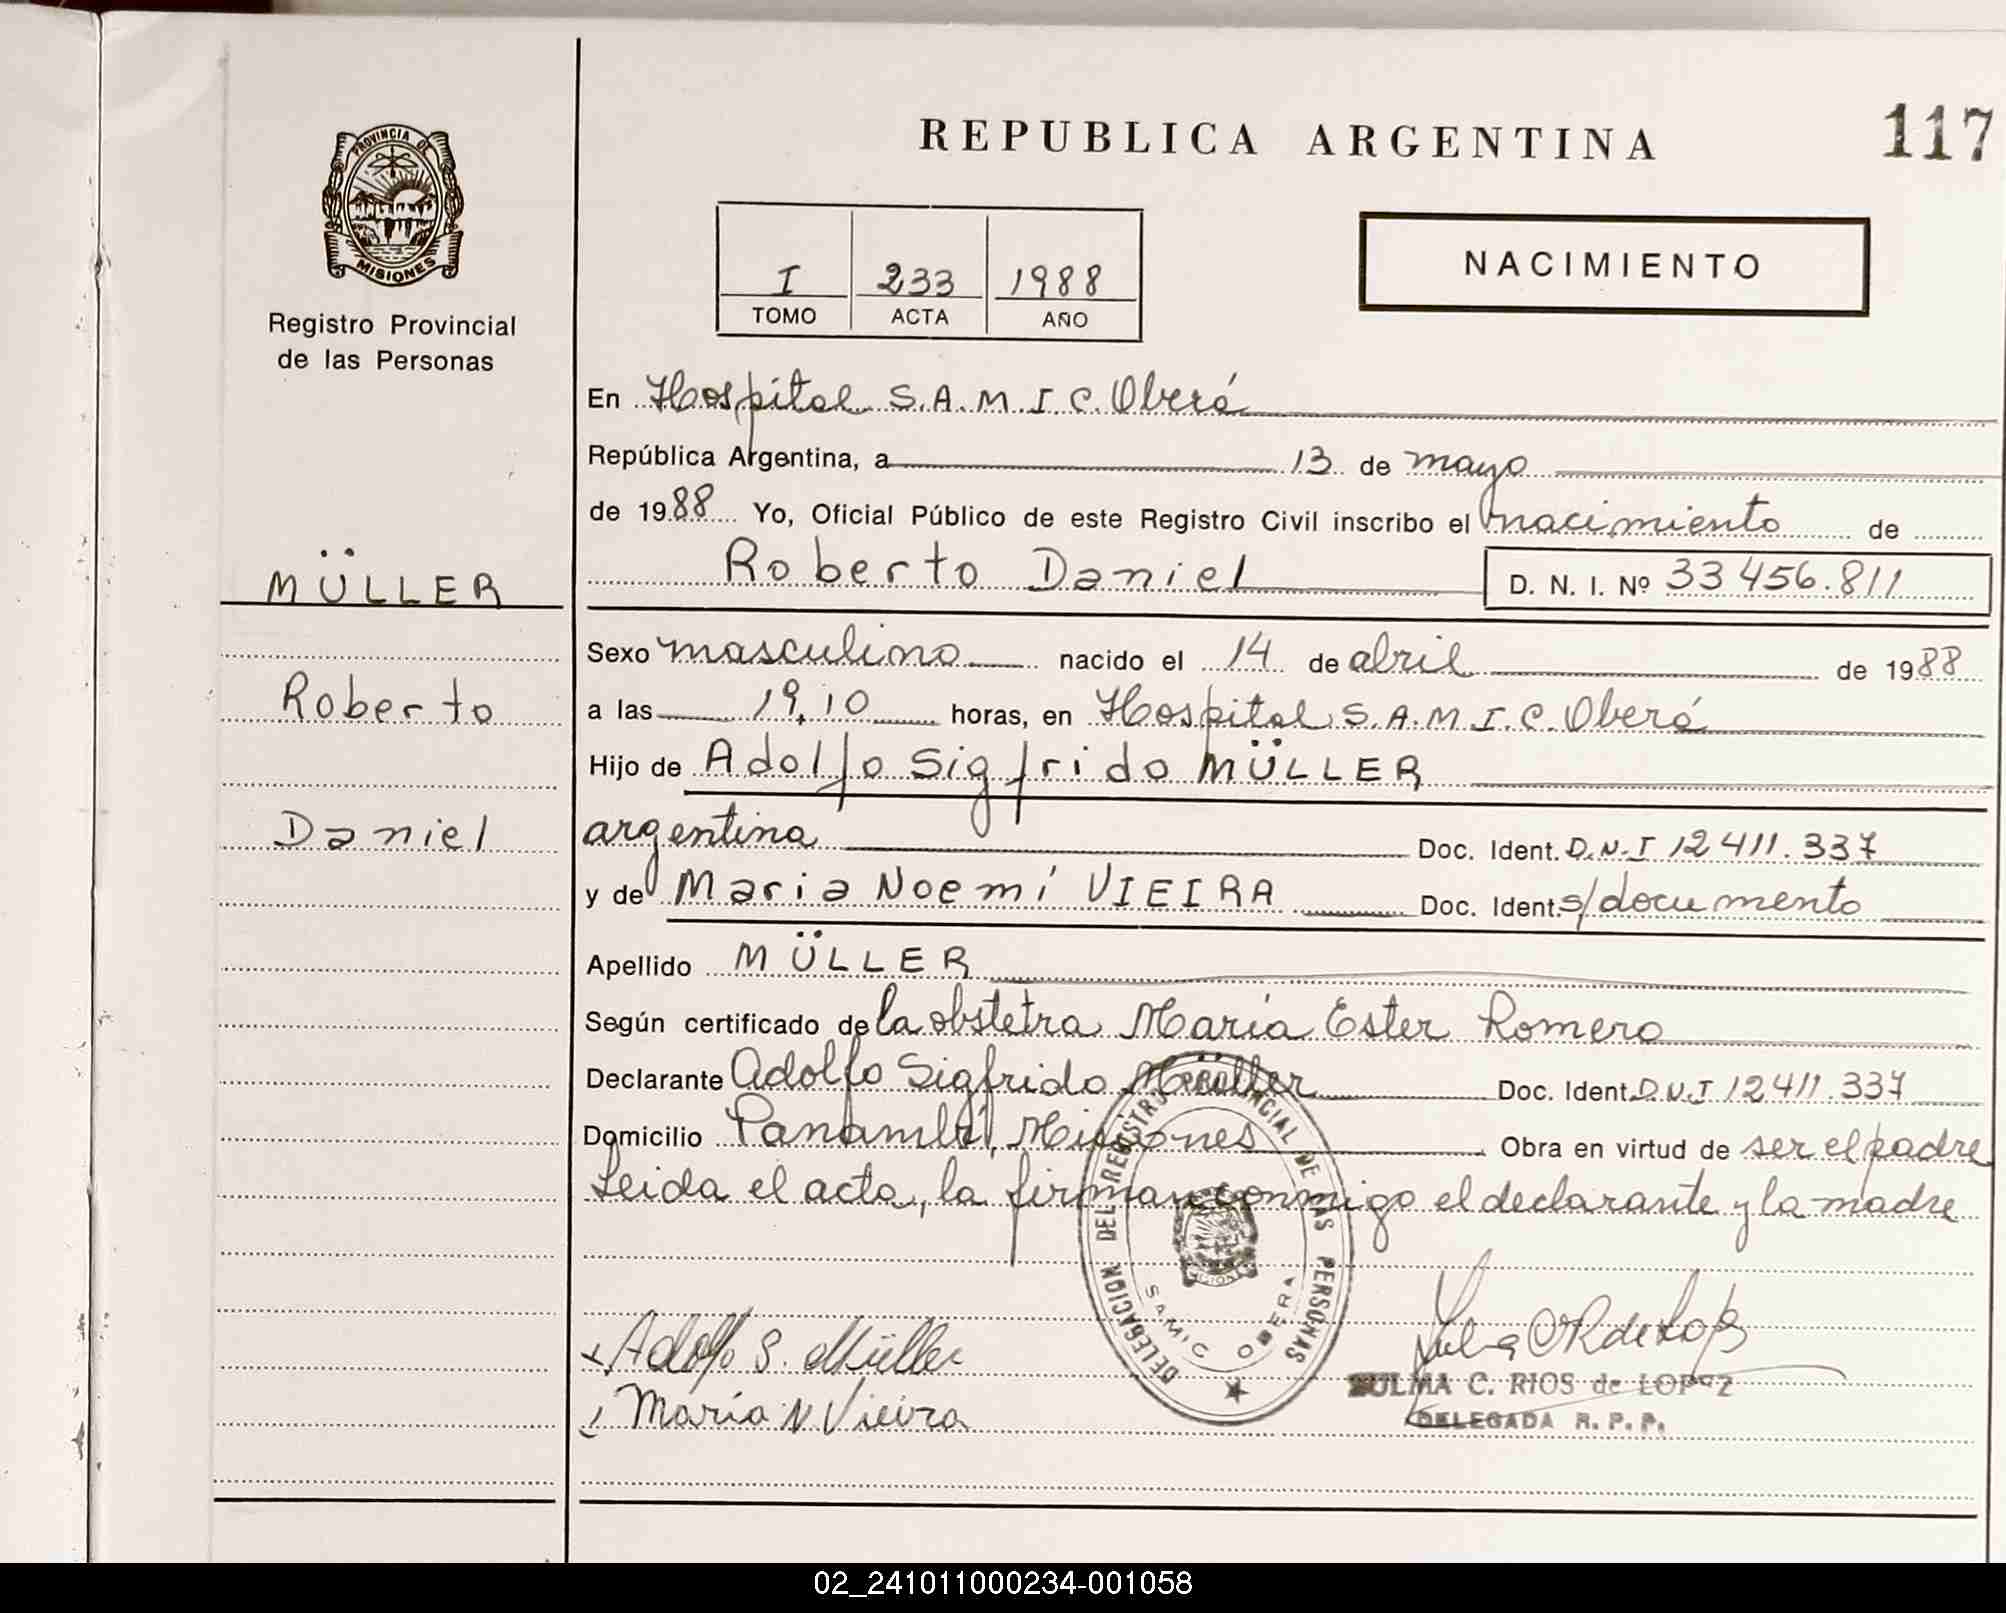 REPUBLICA ARGENTINA
117
PROVINCIA DE
MISIONES
Registro Provincial
de las Personas
I 233 1988
TOMO ACTA AÑO
NACIMIENTO
En Hospital S.A.M.I.C. Oberá
República Argentina, a 13 de mayo
de 1988 Yo, Oficial Público de este Registro Civil inscribo el nacimiento de
Roberto Daniel
D. N. I. Nº 33456.811
MÜLLER
Roberto
Daniel
Sexo masculino nacido el 14 de abril de 1988
a las 19,10 horas, en Hospital S.A.M.I.C. Oberá
Hijo de Adolfo Sigfrido MÜLLER
argentina Doc. Ident. D.N.I 12411.337
y de Maria Noemí VIEIRA Doc. Ident. s/documento
Apellido MÜLLER
Según certificado de la obstetra María Ester Romero
Declarante Adolfo Sigfrido Müller Doc. Ident. D.N.I 12411.337
Domicilio Panambí, Misiones Obra en virtud de ser el padre
Leida el acta, la firman conmigo el declarante y la madre
DELEGACION DEL REGISTRO PROVINCIAL DE LAS PERSONAS
SAMIC OBERA
Adolfo S. Müller
María N Vieira
ZULMA C. RIOS de LOPEZ
DELEGADA R. P. P.
02_241011000234-001058